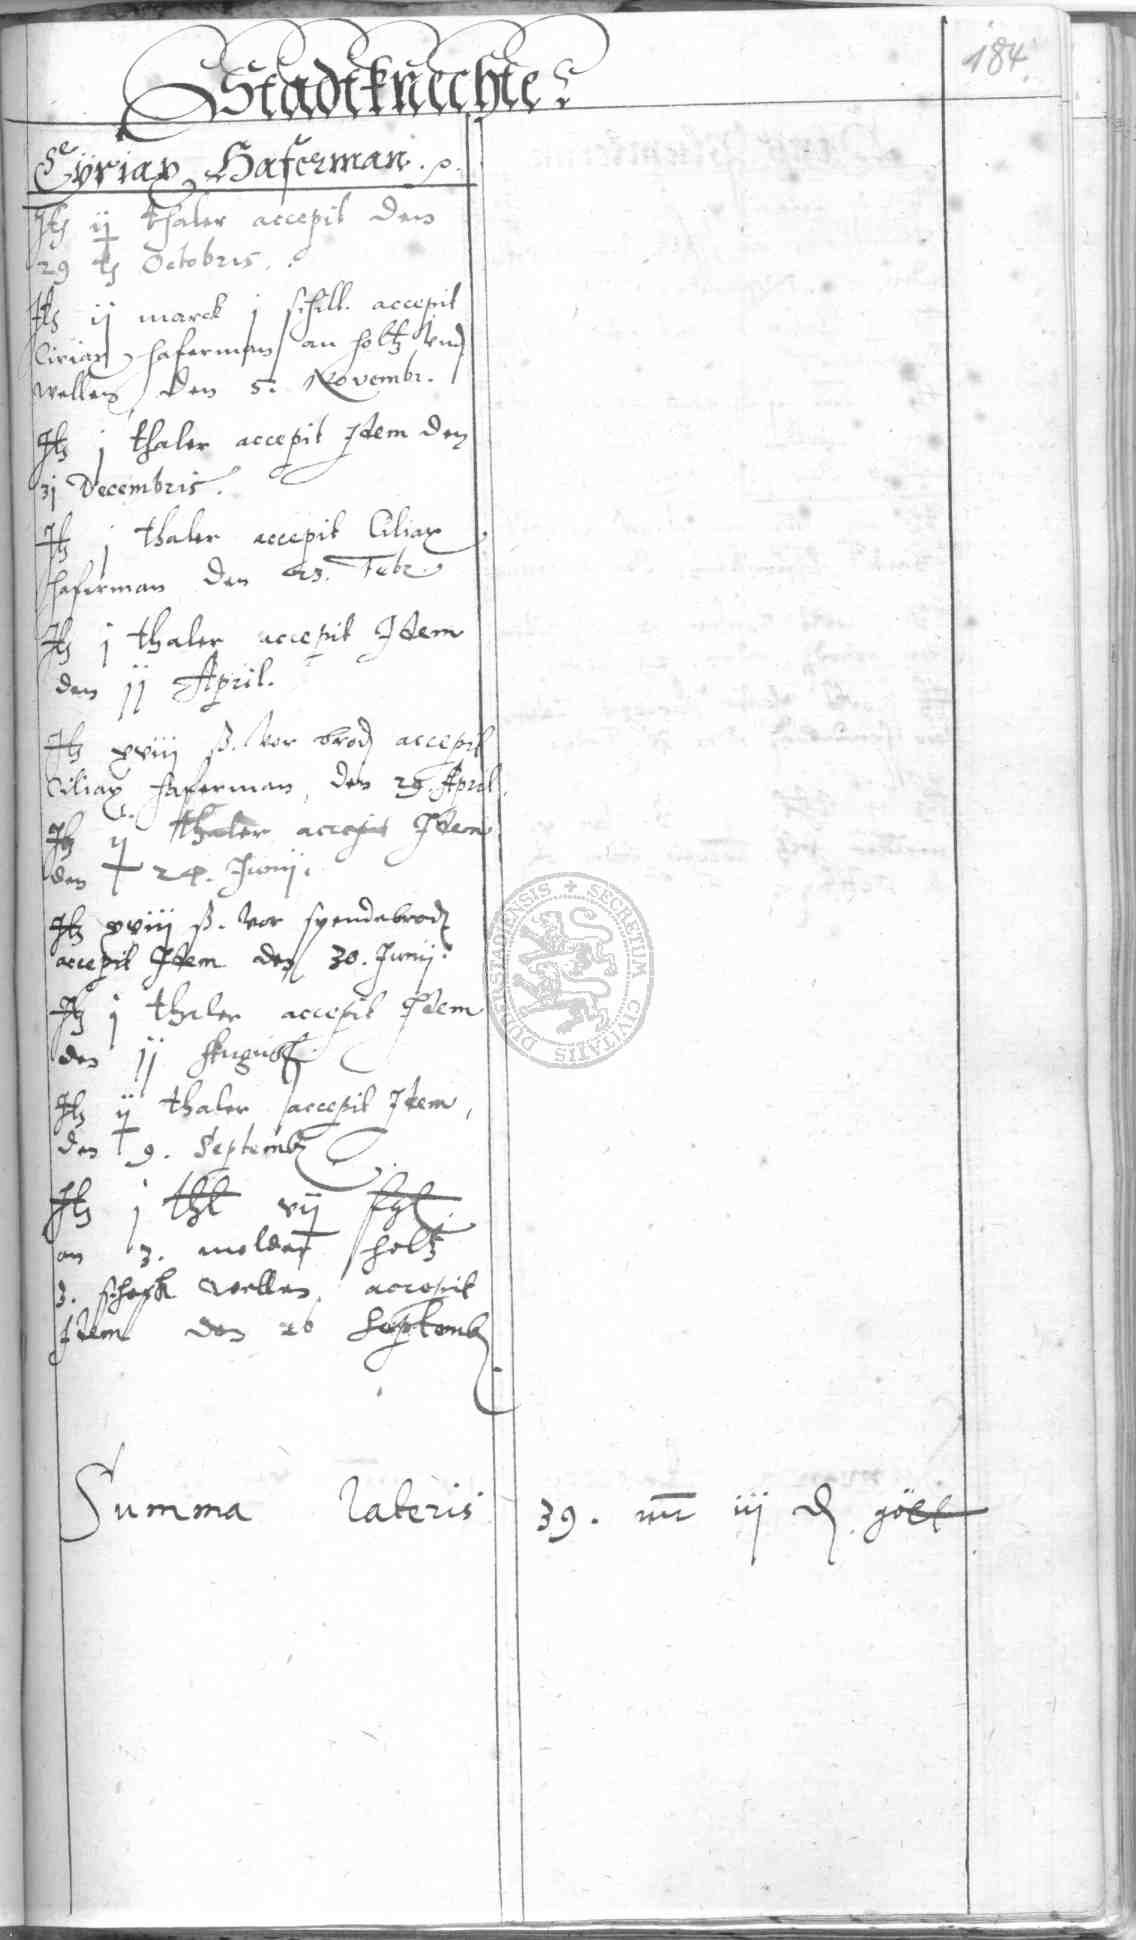 184
Stadtknechte
Cyriax Haferman
It ij thaler accepit den
29 Octobris
It ij marck j schill. accepit
Ciriax Haferman an holtz vnd
wellen den 5. Novembr.
It j thaler accepit Idem den
31 Decembris.
It j thaler accepit Ciliax
Haferman den 23. Febr.
It j thaler accepit Idem
den jj April.
It xviij ß. vor brod accepit
Ciliax Haferman, den 29. April.
It ij thaler accepit Idem
den 24. Junij.
It xviij ß. vor spendebrod
accepit Idem den 30. Junij.
It j thaler accepit Idem
den jj August
It ij thaler accepit Idem,
den 9. Septemb
It j thl vij
an 3. molder holtz
3. schock wellen accepit
Idem den 26 Septemb
Summa lateris 39. mr iij d gött
SECRETUM CIVITATIS DUDERSTADIENSIS